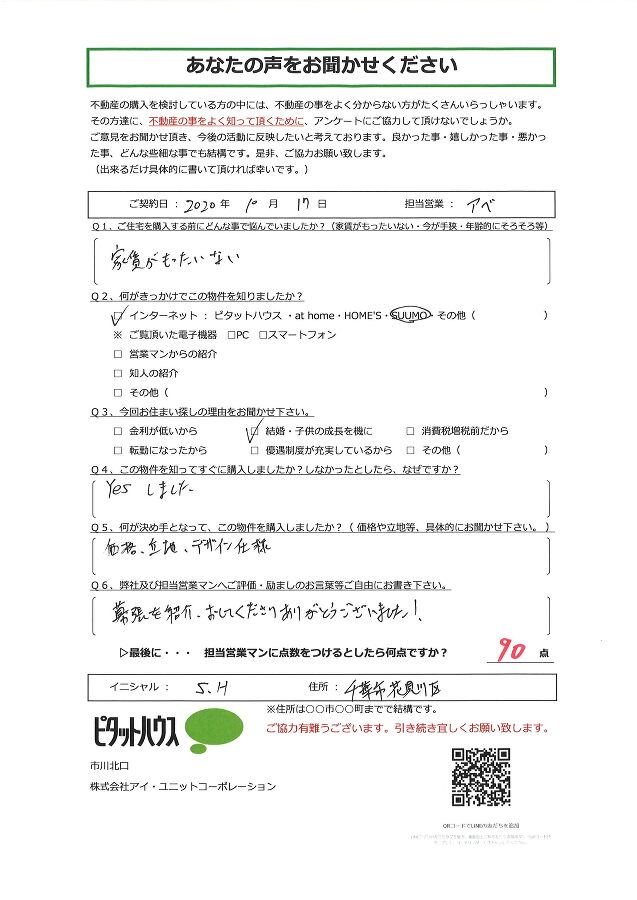 あなたの声をお聞かせください
不動産の購入を検討している方の中には、不動産の事をよく分からない方がたくさんいらっしゃいます。
その方達に、不動産の事をよく知って頂くために、アンケートにご協力して頂けないでしょうか。
ご意見をお聞かせ頂き、今後の活動に反映したいと考えております。良かった事・嬉しかった事・悪かっ
た事、どんな些細な事でも結構です。是非、ご協力お願い致します。
（出来るだけ具体的に書いて頂ければ幸いです。）
ご契約日 : 2020 年 10 月 17 日 担当営業 : アベ
Q１、ご住宅を購入する前にどんな事で悩んでいましたか？（家賃がもったいない・今が手狭・年齢的にそろそろ等）
家賃がもったいない
Q２、何がきっかけでこの物件を知りましたか？
□ インターネット : ピタットハウス ・at home・HOME'S・SUUMO・その他（ ）
※ ご覧頂いた電子機器 □PC □スマートフォン
□ 営業マンからの紹介
□ 知人の紹介
□ その他（ ）
Q３、今回お住まい探しの理由をお聞かせ下さい。
□ 金利が低いから □ 結婚・子供の成長を機に □ 消費税増税前だから
□ 転勤になったから □ 優遇制度が充実しているから □ その他（ ）
Q４、この物件を知ってすぐに購入しましたか？しなかったとしたら、なぜですか？
Yes しました
Q５、何が決め手となって、この物件を購入しましたか？（ 価格や立地等、具体的にお聞かせ下さい。 ）
価格、立地、デザイン仕様
Q６、弊社及び担当営業マンへご評価・励ましのお言葉等ご自由にお書き下さい。
幕張を紹介、おしてくださりありがとうございました！
▷最後に・・・ 担当営業マンに点数をつけるとしたら何点ですか？ 90 点
イニシャル : S.H 住所 : 千葉市花見川区
※住所は〇〇市〇〇町までで結構です。
ピタットハウス
ご協力有難うございます。引き続き宜しくお願い致します。
市川北口
株式会社アイ・ユニットコーポレーション
QRコードでLINEの友だちを追加